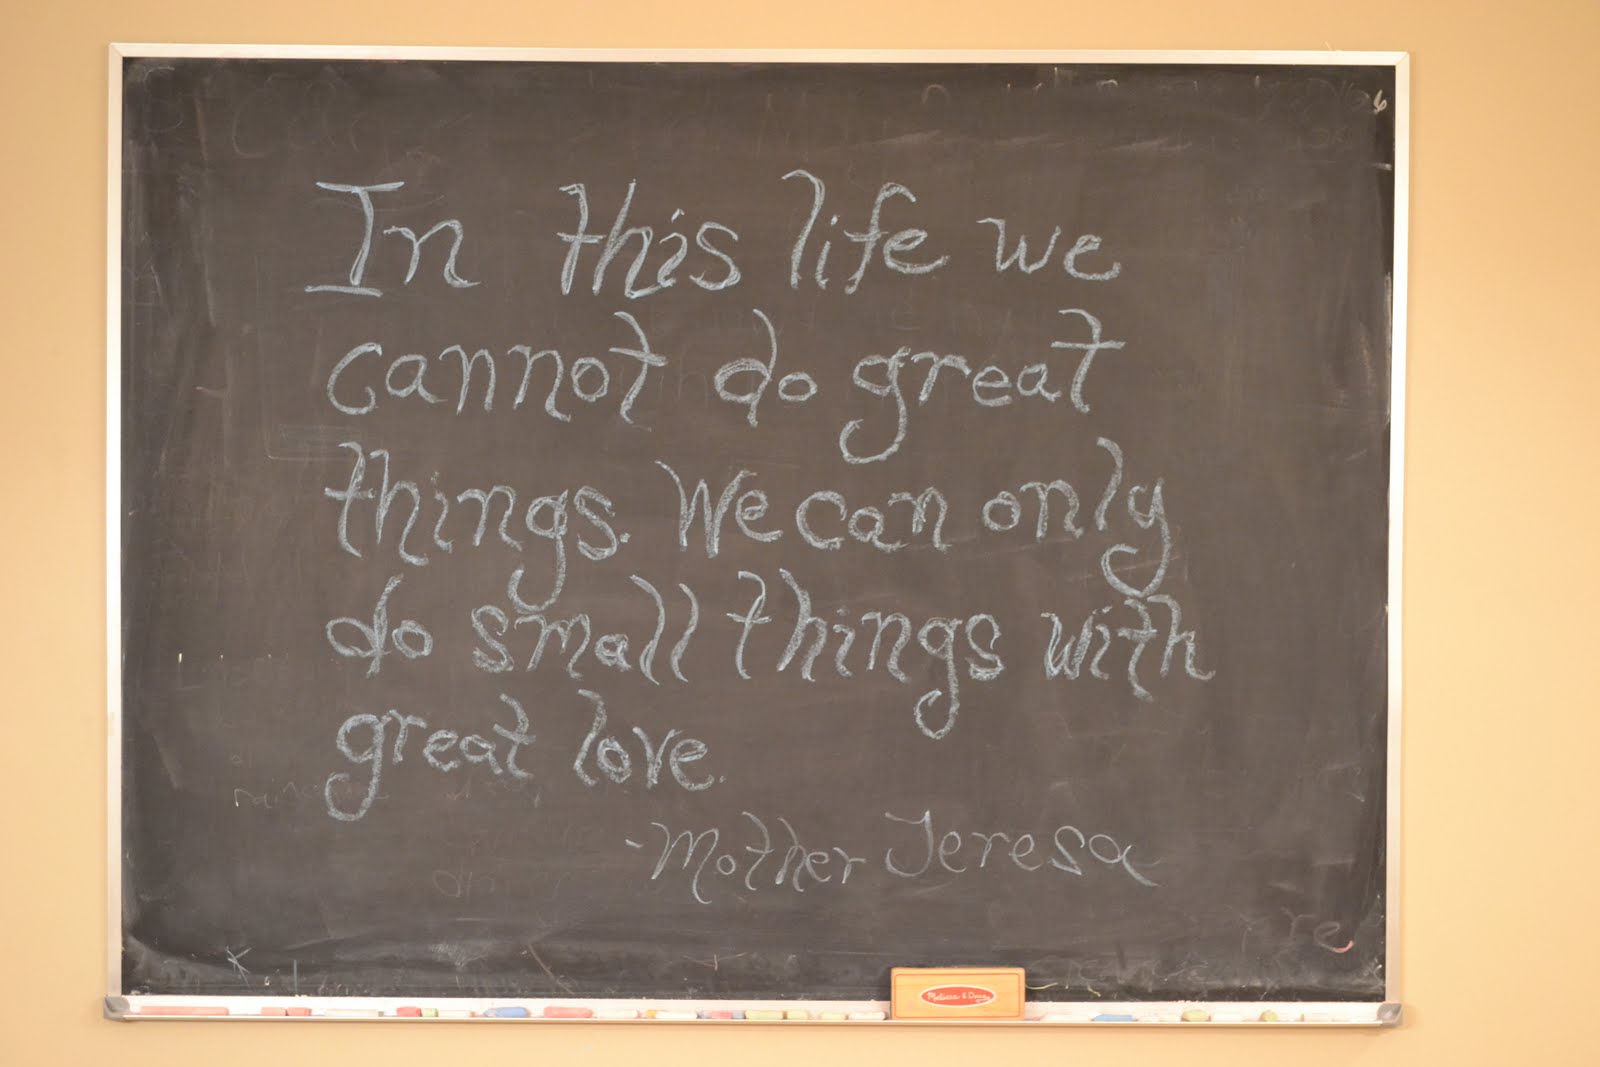 In this life we
cannot do great
things. We can only
do small things with
great love.
-Mother Teresa
re
Melissa & Doug